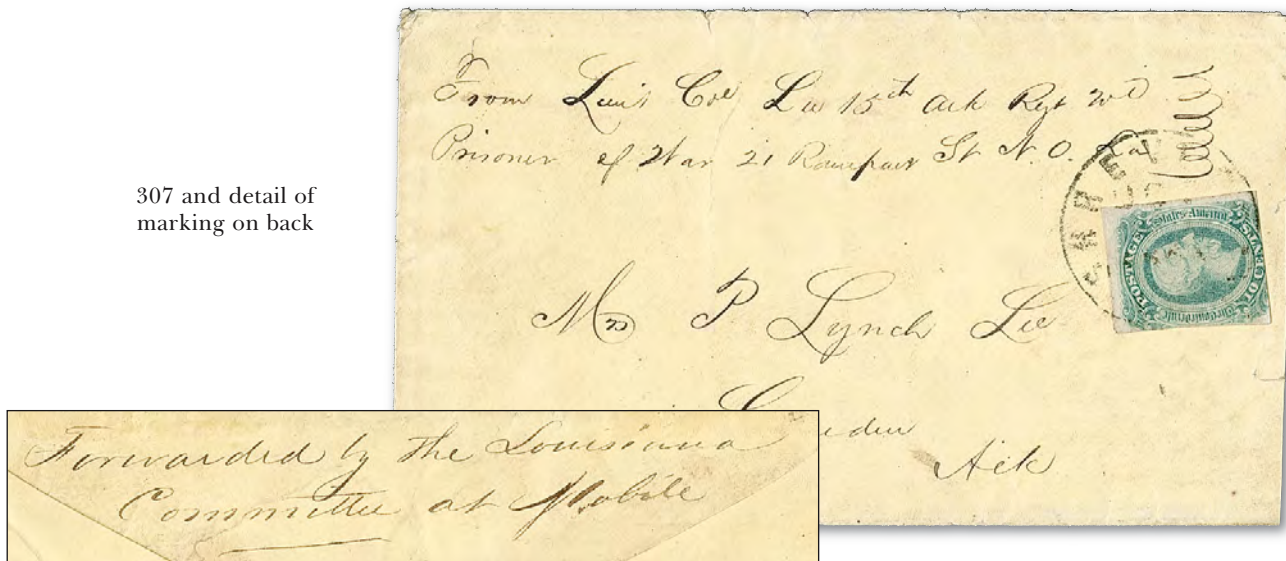 307 and detail of
marking on back
From Lieut Col Lee 15th Ark Regt
Prisoner of War 21 Rampart St N.O. La
SHREVE
POSTAGE
Confederate States America
10 CENTS
Mrs P Lynch Lee
Ark
Forwarded by the Louisiana
Committee at Mobile